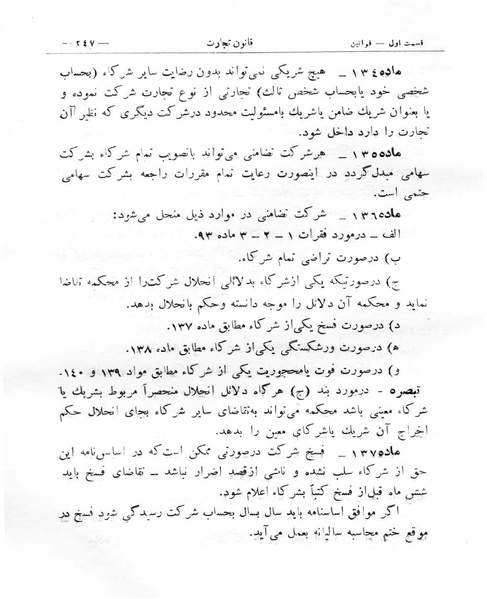 قسمت اول — قوانین قانون تجارت — ۲۴۷ —
ماده ۱۳۴ — هیچ شریکی نمی‌تواند بدون رضایت سایر شرکاء (بحساب
شخصی خود یابحساب شخص ثالث) تجارتی از نوع تجارت شرکت نموده و
یا بعنوان شریک ضامن یاشریک بامسئولیت محدود درشرکت دیگری که نظیر آن
تجارت را دارد داخل شود.
ماده ۱۳۵ — هرشرکت تضامنی می‌تواند باتصویب تمام شرکاء بشرکت
سهامی مبدل گردد در اینصورت رعایت تمام مقررات راجعه بشرکت سهامی
حتمی است.
ماده ۱۳۶ — شرکت تضامنی در موارد ذیل منحل می‌شود:
الف — درمورد فقرات ۱ — ۲ — ۳ ماده ۹۳.
ب) درصورت تراضی تمام شرکاء.
ج) درصورتیکه یکی ازشرکاء بدلائلی انحلال شرکت‌را از محکمه تقاضا
نماید و محکمه آن دلائل را موجه دانسته وحکم بانحلال بدهد.
د) درصورت فسخ یکی‌از شرکاء مطابق ماده ۱۳۷.
ه) درصورت ورشکستگی یکی‌از شرکاء مطابق ماده ۱۳۸.
و) درصورت فوت یامحجوریت یکی از شرکاء مطابق مواد ۱۳۹ و ۱۴۰.
تبصره — درمورد بند (ج) هرگاه دلائل انحلال منحصراً مربوط بشریك یا
شرکاء معینی باشد محکمه می‌تواند به‌تقاضای سایر شرکاء بجای انحلال حکم
اخراج آن شریك یاشرکای معین را بدهد.
ماده ۱۳۷ — فسخ شرکت درصورتی ممکن است‌که در اساس‌نامه این
حق از شرکاء سلب نشده و ناشی ازقصد اضرار نباشد — تقاضای فسخ باید
شش ماه قبل‌از فسخ کتباً بشرکاء اعلام شود.
اگر موافق اساسنامه باید سال بسال بحساب شرکت رسیدگی شود فسخ در
موقع ختم محاسبه سالیانه بعمل می‌آید.